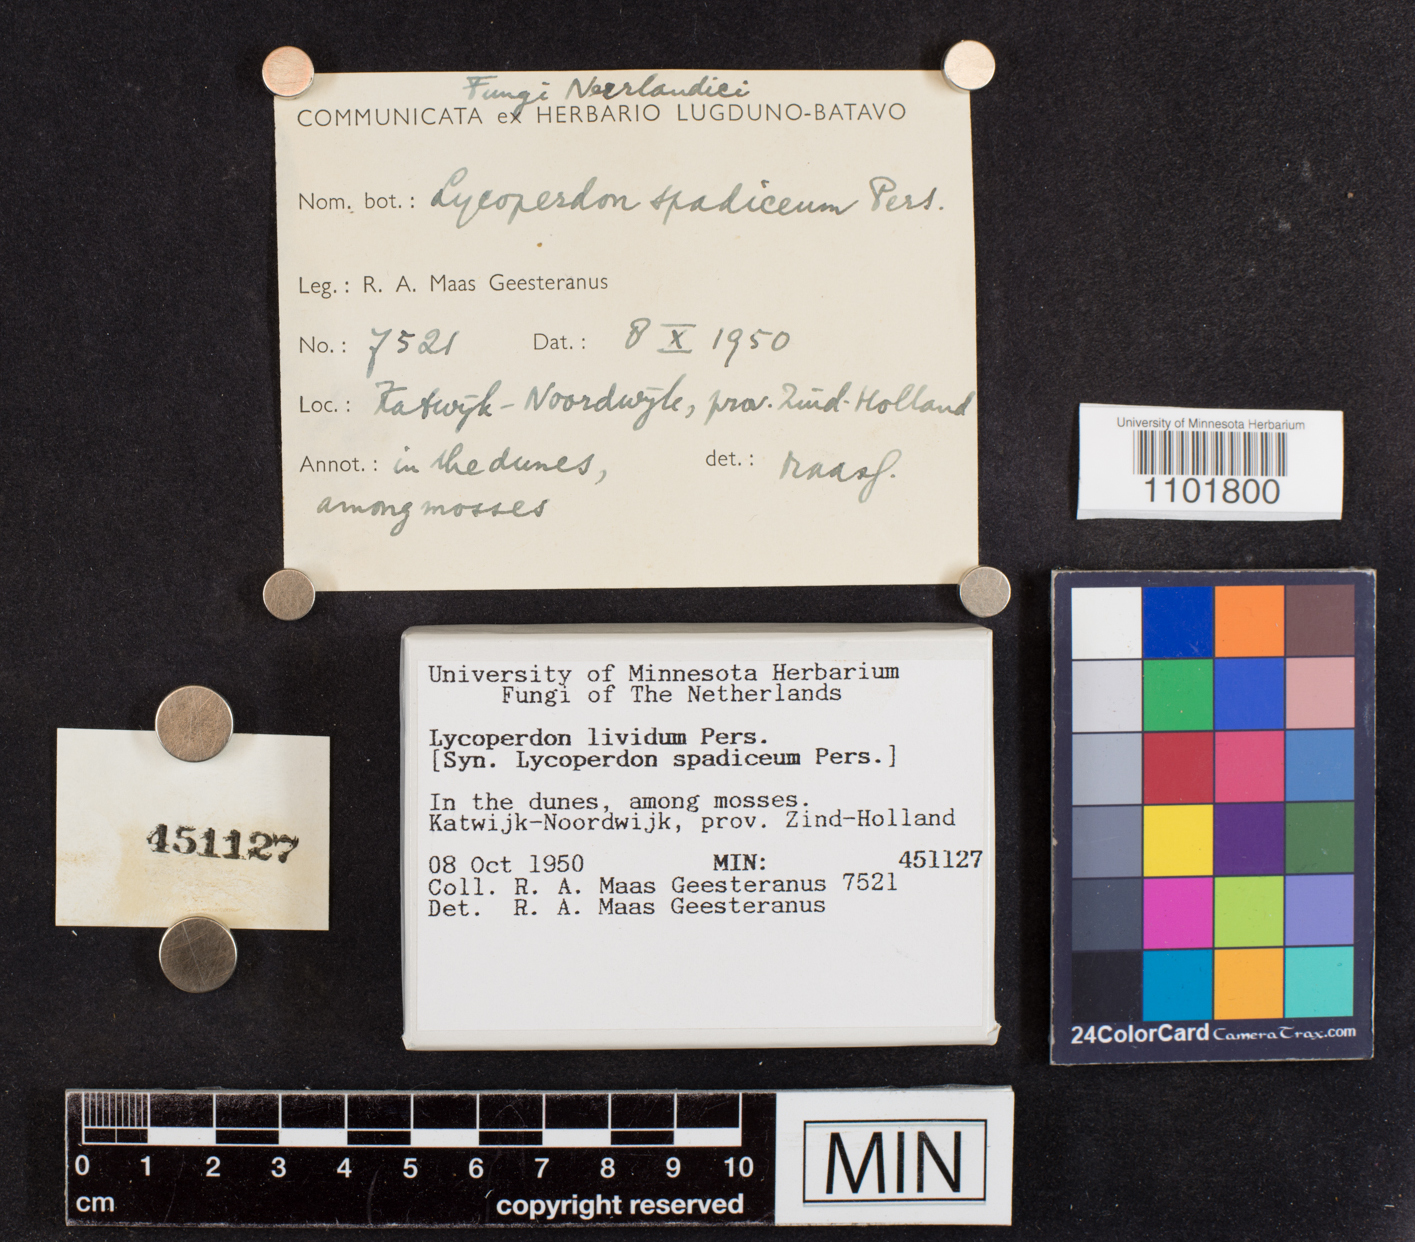 Fungi Neerlandici
COMMUNICATA ex HERBARIO LUGDUNO-BATAVO
Nom. bot.: Lycoperdon spadiceum Pers.
Leg.: R. A. Maas Geesteranus
No.: 7521 Dat.: 8 X 1950
Loc.: Katwijk - Noordwijk, prov. Zuid-Holland
Annot.: in the dunes, det.: Maasg.
among mosses
University of Minnesota Herbarium
1101800
University of Minnesota Herbarium
Fungi of The Netherlands
Lycoperdon lividum Pers.
[Syn. Lycoperdon spadiceum Pers.]
In the dunes, among mosses.
Katwijk-Noordwijk, prov. Zind-Holland
08 Oct 1950 MIN: 451127
Coll. R. A. Maas Geesteranus 7521
Det. R. A. Maas Geesteranus
451127
24ColorCard CameraTrax.com
0 1 2 3 4 5 6 7 8 9 10
cm copyright reserved
MIN